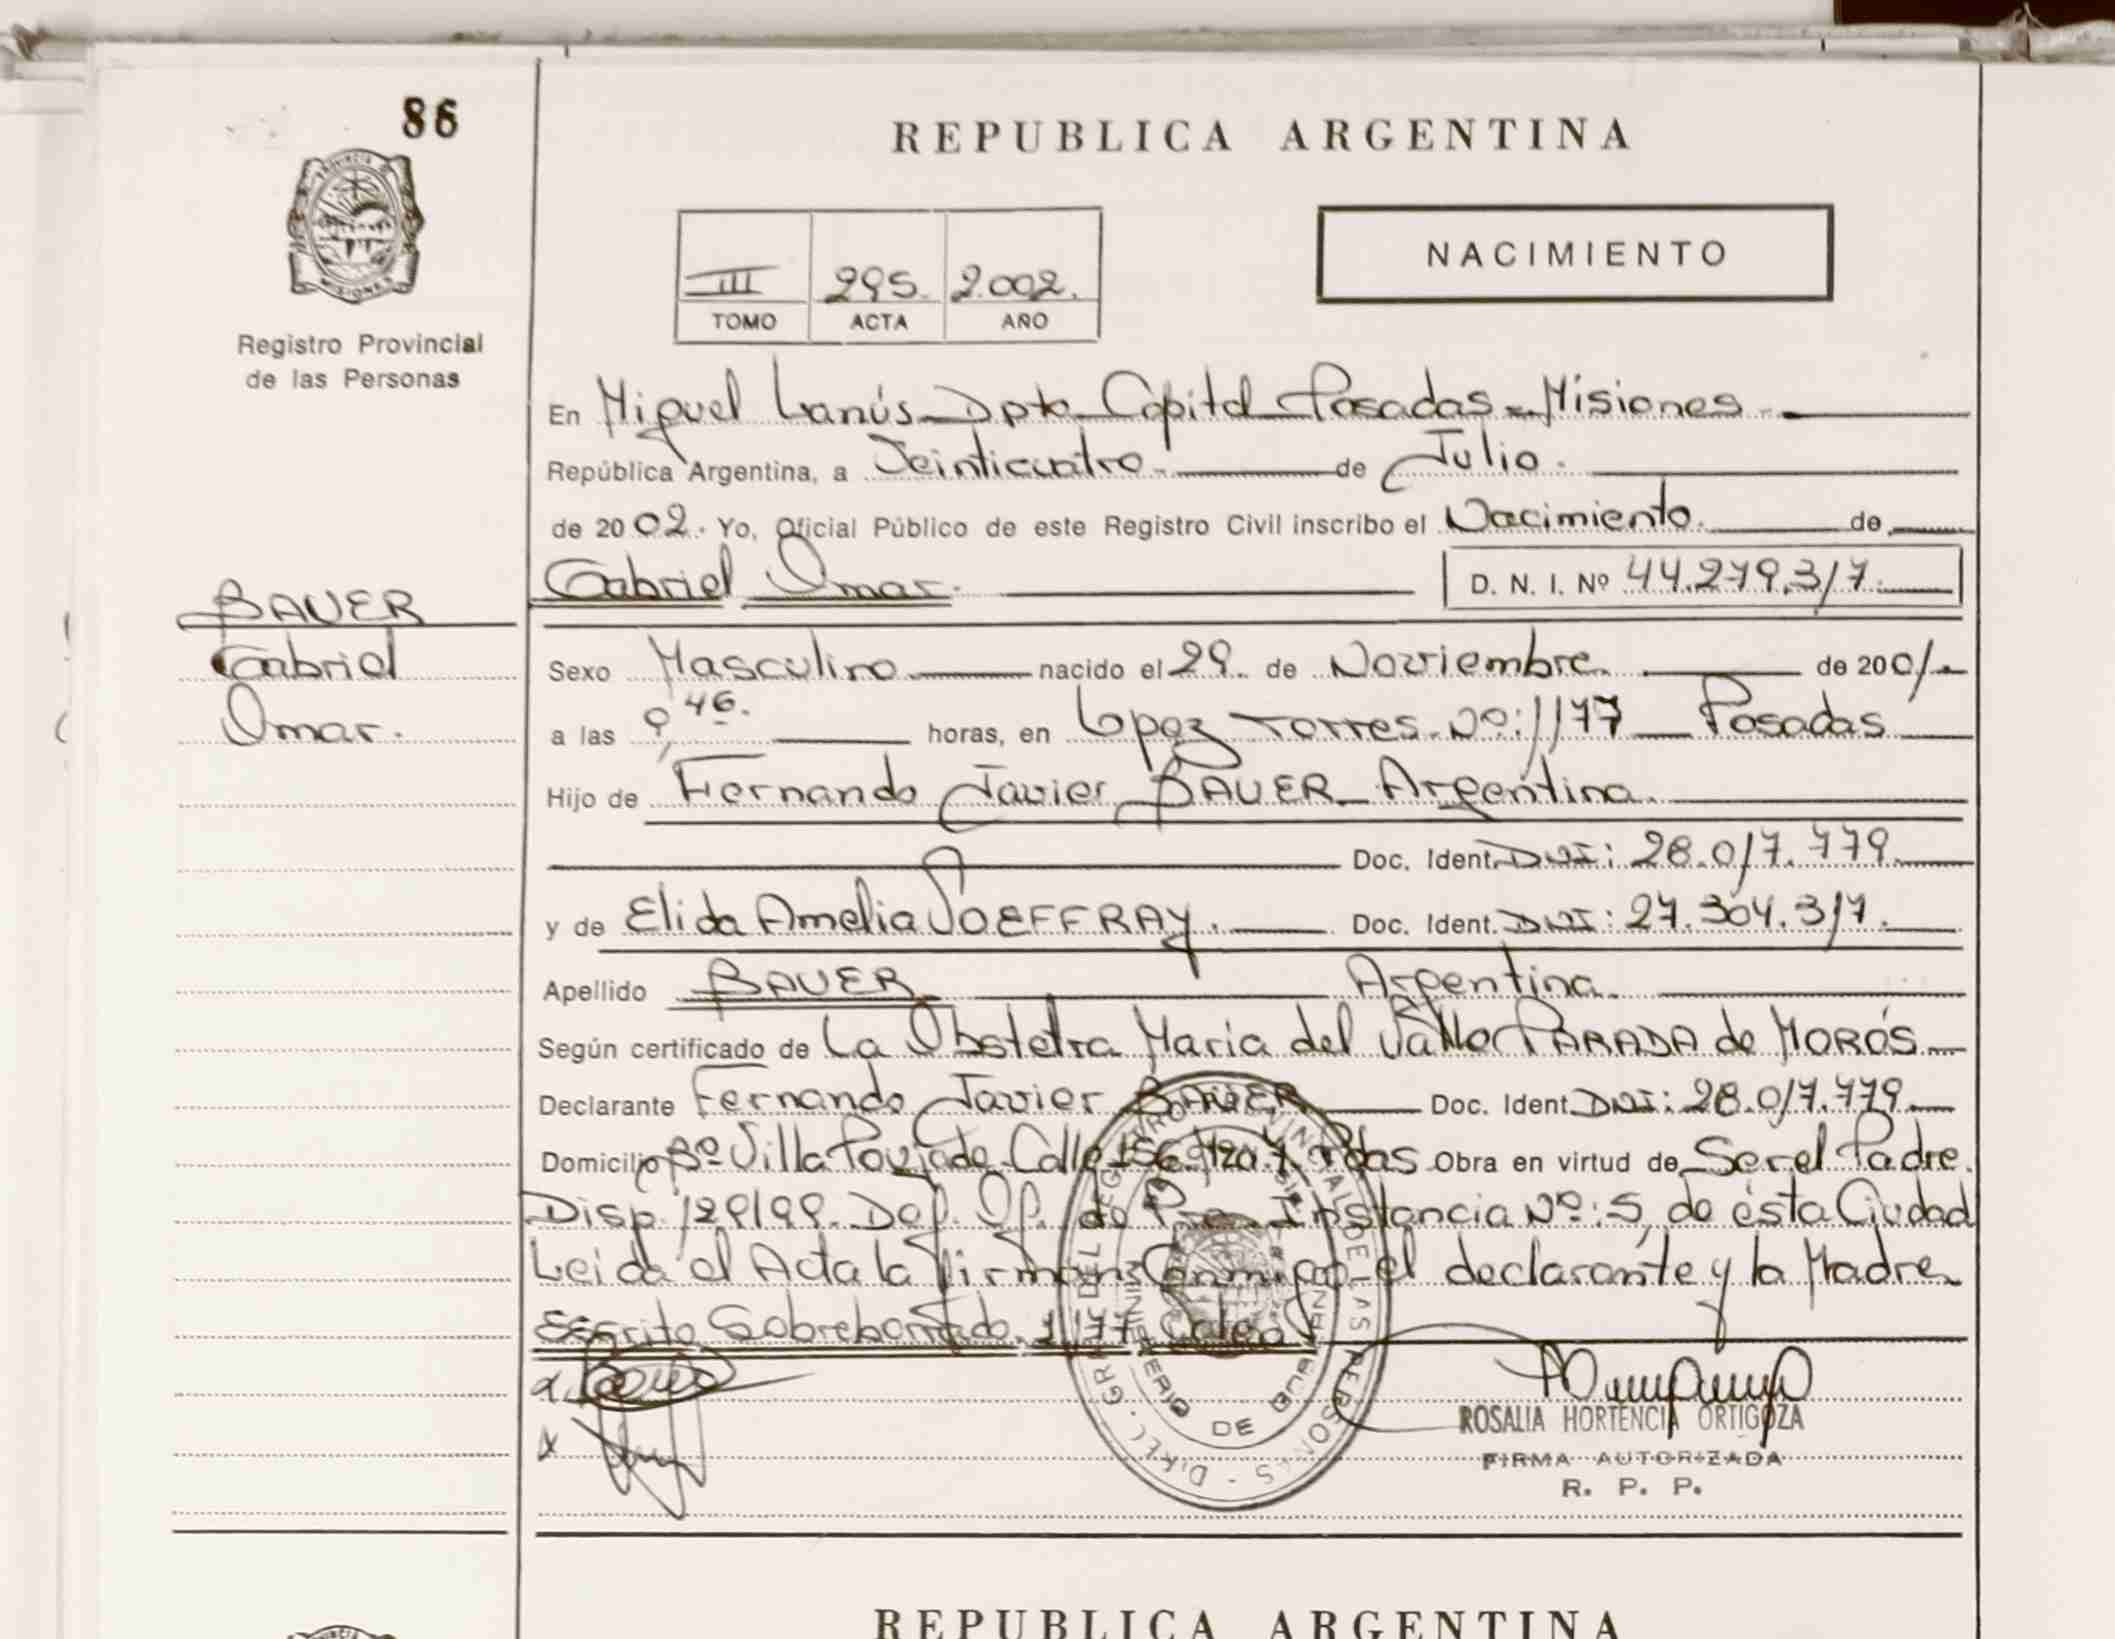 86
REPUBLICA ARGENTINA
PROVINCIA DE MISIONES
Registro Provincial
de las Personas
NACIMIENTO
III 295. 2.002.
TOMO ACTA AÑO
En Miguel Lanús Dpto Capital Posadas Misiones
República Argentina, a Veinticuatro. de Julio.
de 2002. Yo, Oficial Público de este Registro Civil inscribo el Nacimiento. de
Gabriel Omar. D. N. I. Nº 44.279.317.
BAUER
Gabriel
Omar.
Sexo Masculino nacido el 29. de Noviembre de 2001
a las 9,46. horas, en Lopez Torres Nº: 1177 Posadas
Hijo de Fernando Javier BAUER Argentina.
Doc. Ident. DNI: 28.017.779.
y de Elida Amelia JOEFFRAY. Doc. Ident. DNI: 27.304.317.
Apellido BAUER Argentina.
Según certificado de La Obstetra Maria del Valle PARADA de MORÓS
Declarante Fernando Javier BAUER Doc. Ident. DNI: 28.017.779.
Domicilio Bº Villa Poujade Calle Pdas Obra en virtud de Ser el Padre.
Disp. 129/99. Def. Of. de Instancia Nº: 5, de ésta Ciudad
Leida el Acta la firman Conmigo el declarante y la Madre
Escrito Sobreborrado. 1177. Vale
ROSALIA HORTENCIA ORTIGOZA
FIRMA AUTORIZADA
R. P. P.
REPUBLICA ARGENTINA